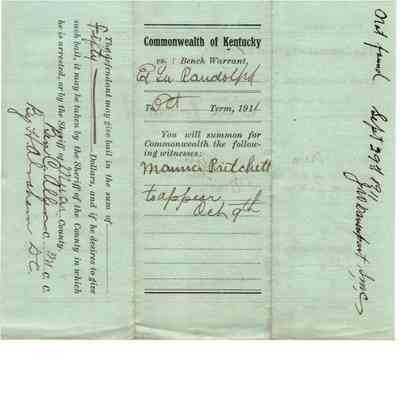 The defendant may give bail in the sum of
fifty Dollars, and if he desires to give
such bail, it may be taken by the Sheriff of the County in which
he is arrested, or by the Sheriff of County.
C. C.
By D. C.
Commonwealth of Kentucky
vs. : Bench Warrant,
Randolph
To Oct Term, 1911
You will summon for
Commonwealth the follow-
ing witnesses:
Maurice Pritchett
to appear
Oct 9th
Not found Sept 29th 1911